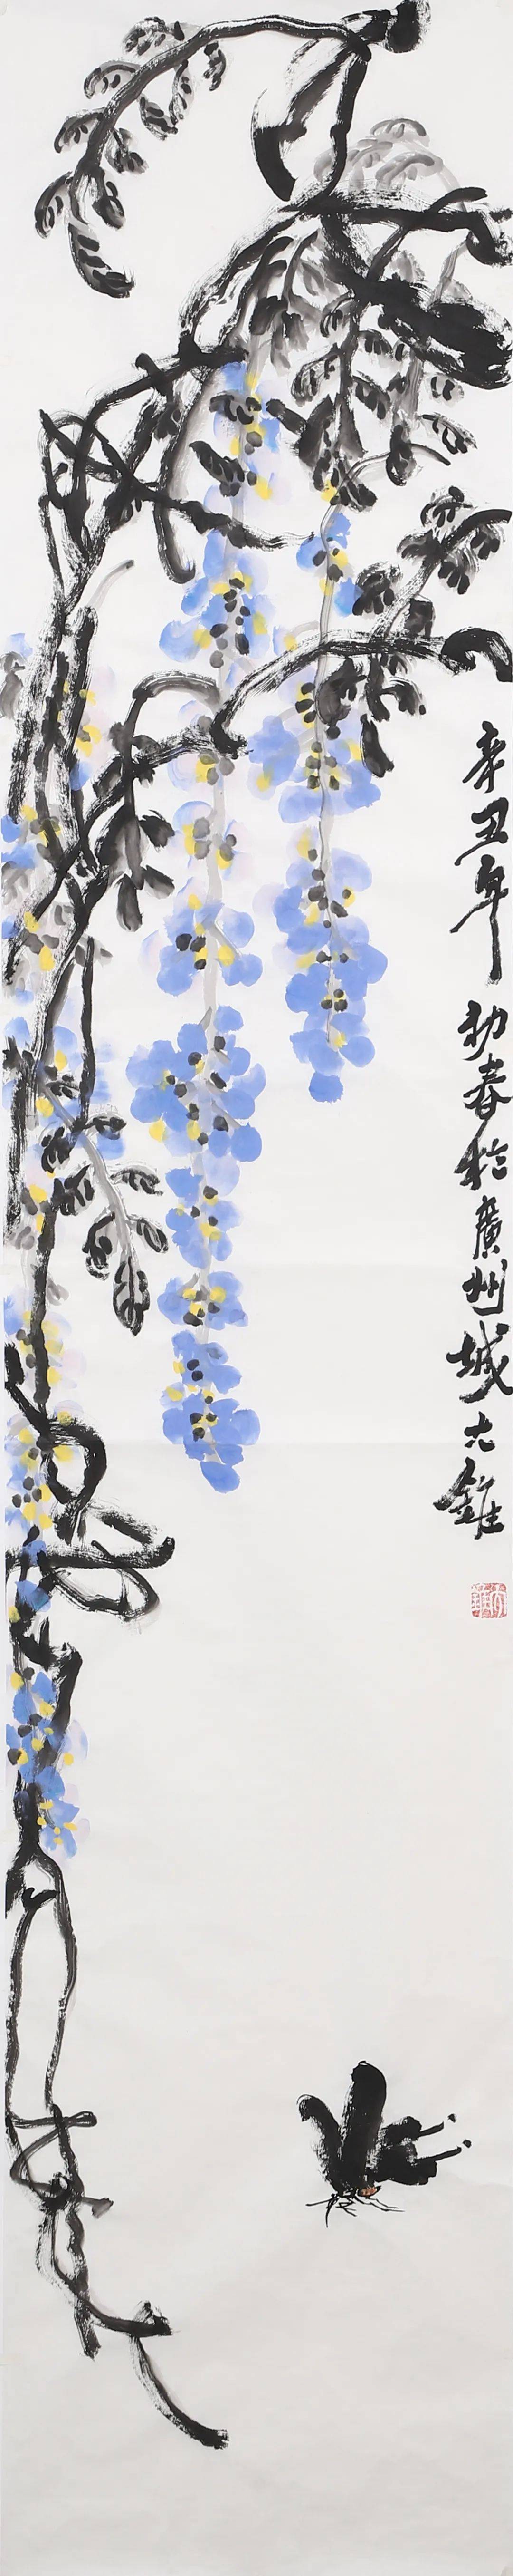 辛丑年初春於廣州城六錐